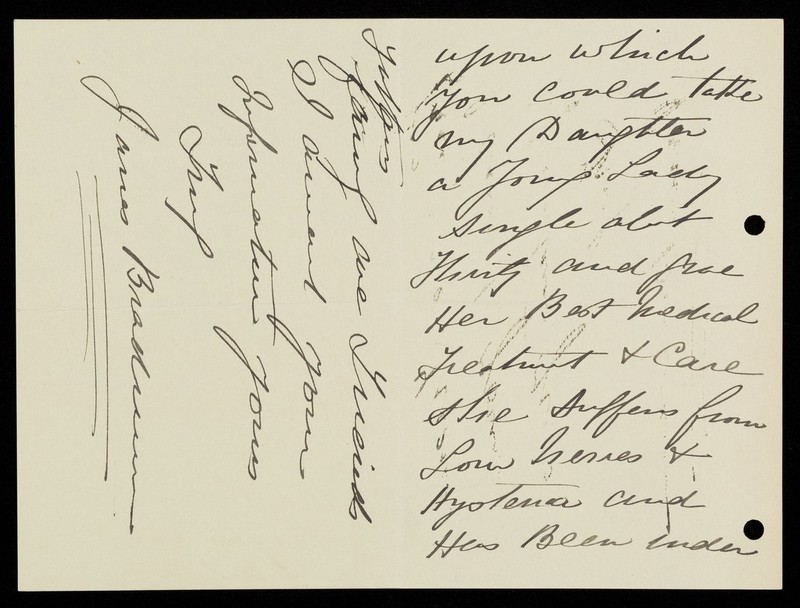 upon which
you could take
my Daughter
a Young Lady
single abut
Thirty and give
Her Best Medical
Treatment & Care
She Suffers from
Low Nerves &
Hysteria and
Has Been under
I await your
Information yours
Truly
James